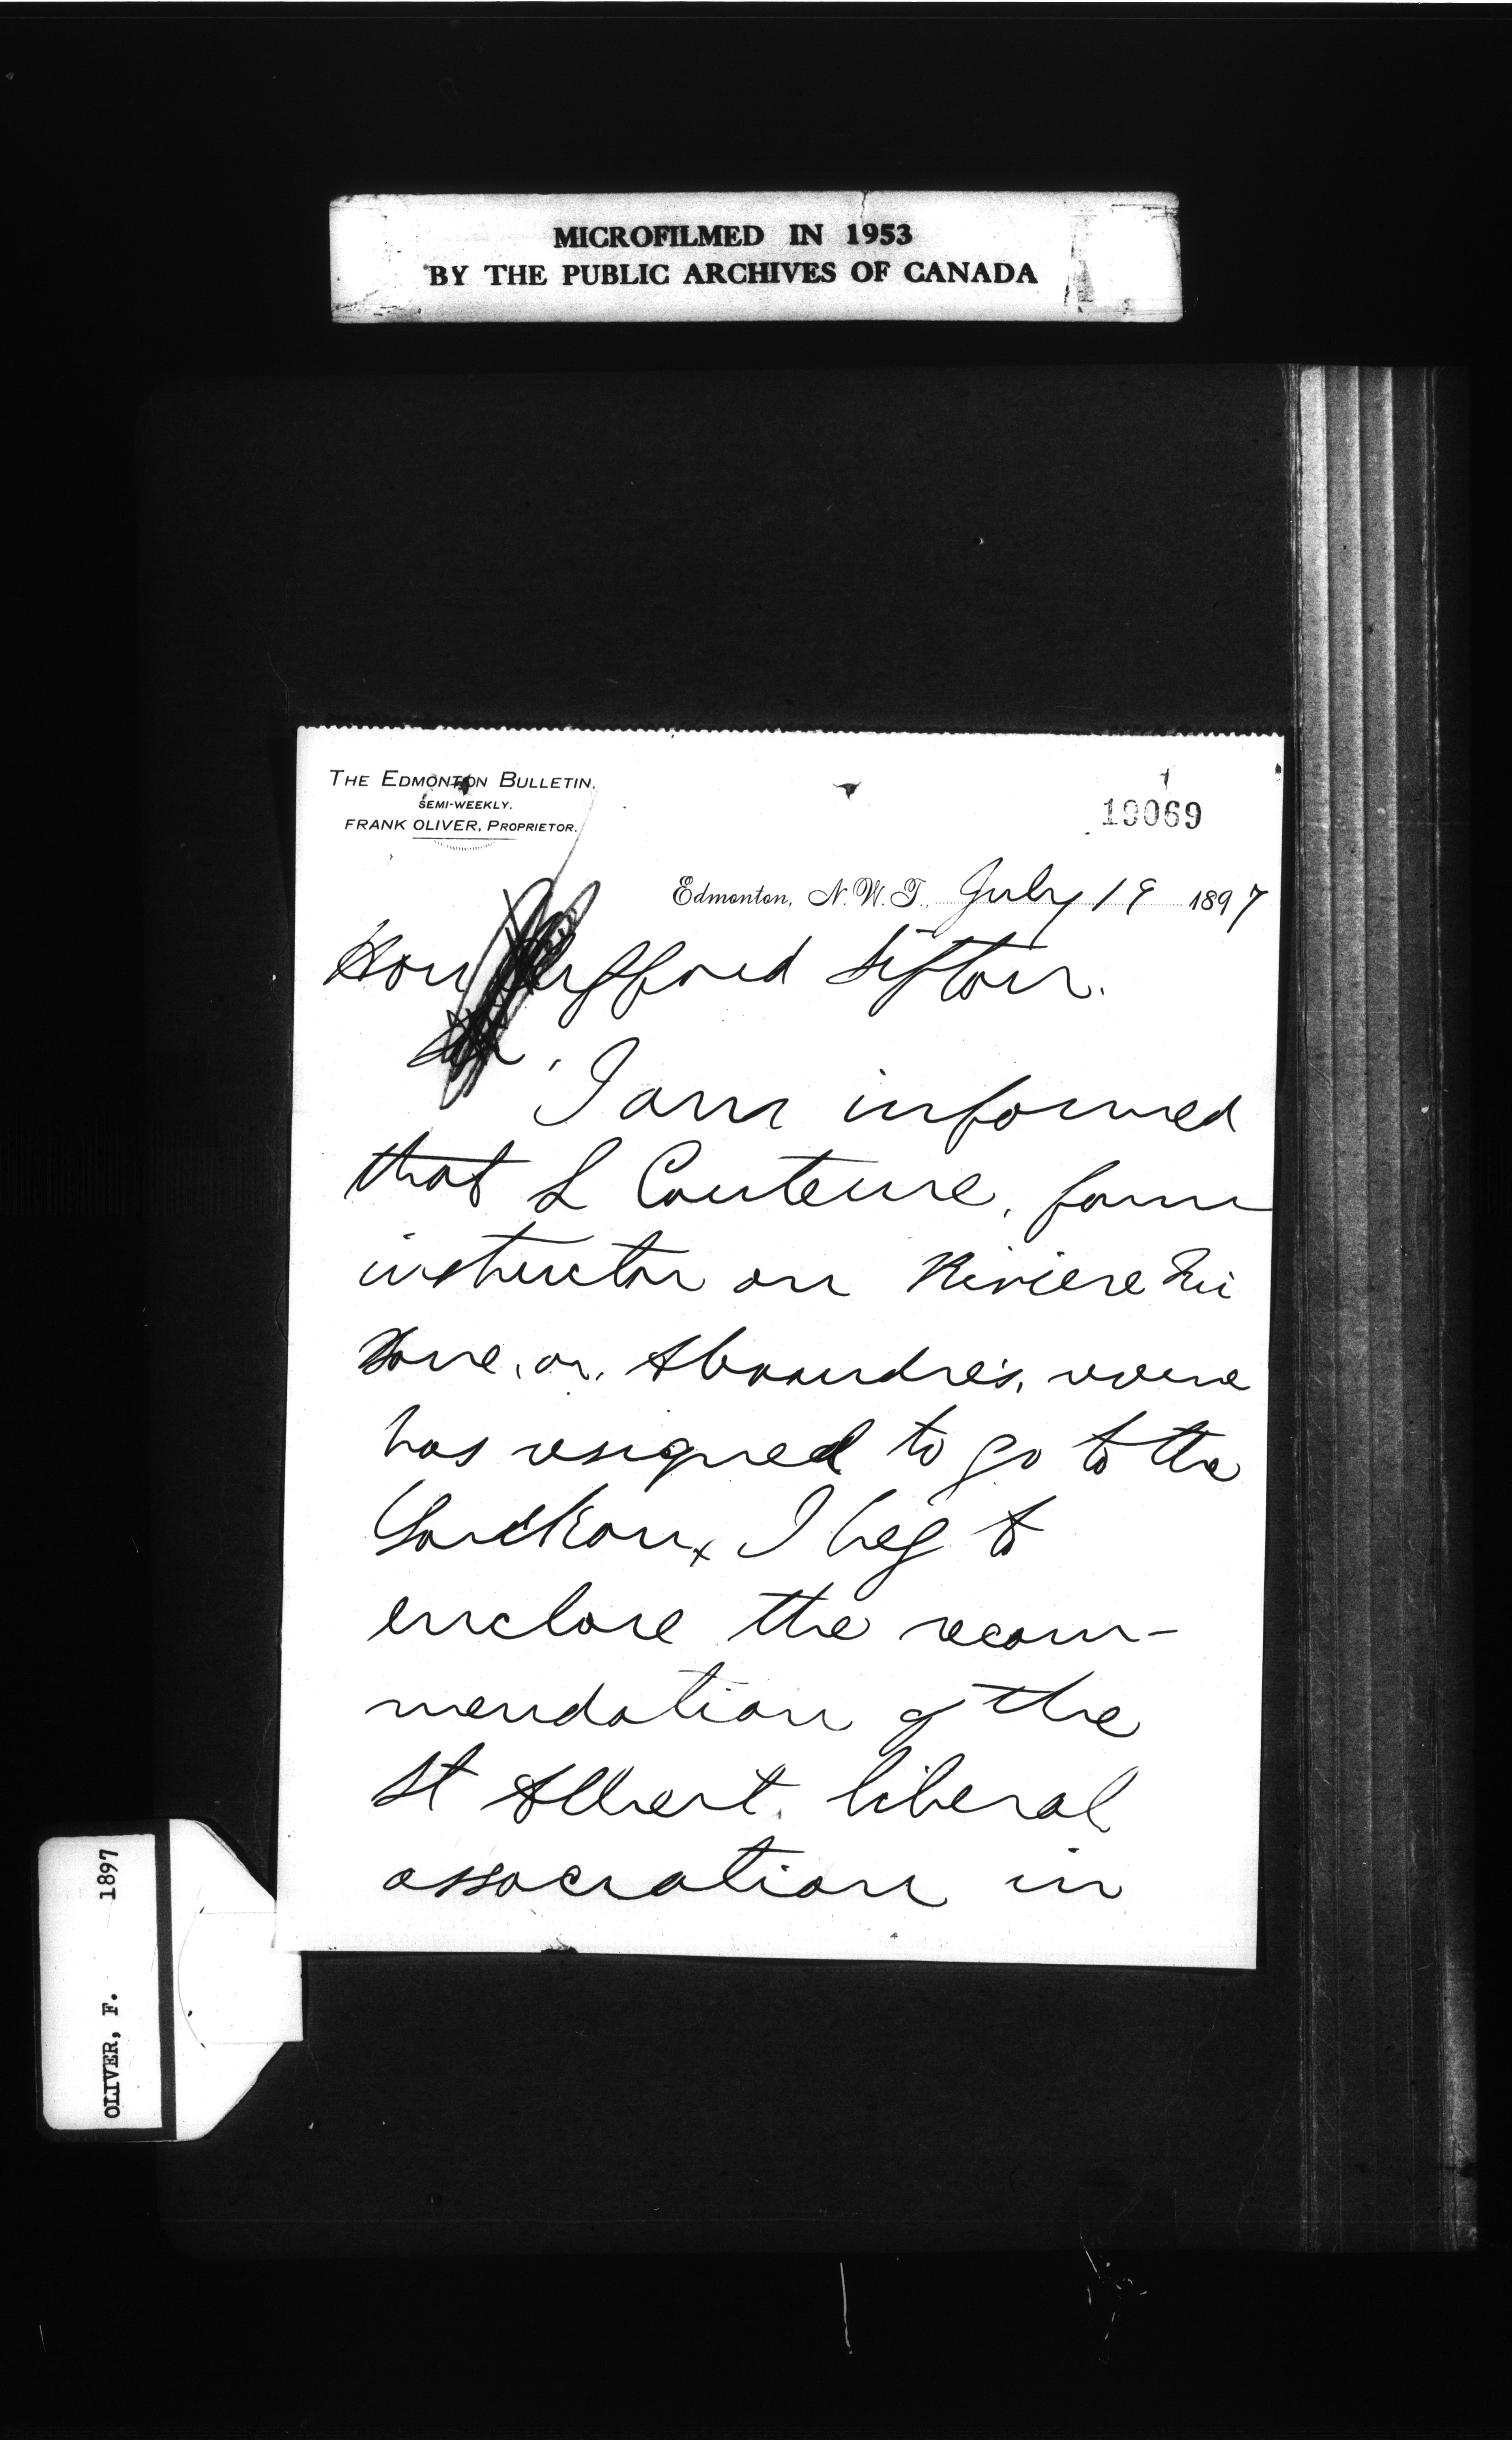 MICROFILMED IN 1953
BY THE PUBLIC ARCHIVES OF CANADA
THE EDMONTON BULLETIN.
SEMI-WEEKLY.
FRANK OLIVER, PROPRIETOR.
19069
Edmonton, N.W.T., July 19 1897
Hon Clifford Sifton.
Sir,
I am informed
that L Couture, farm
instructor on Riviere Qui
Barre, or, Alexandre's, reserve
has resigned to go to the
Youckon x I beg to
enclose the recom-
mendation of the
St Albert liberal
association in
OLIVER, F. 1897